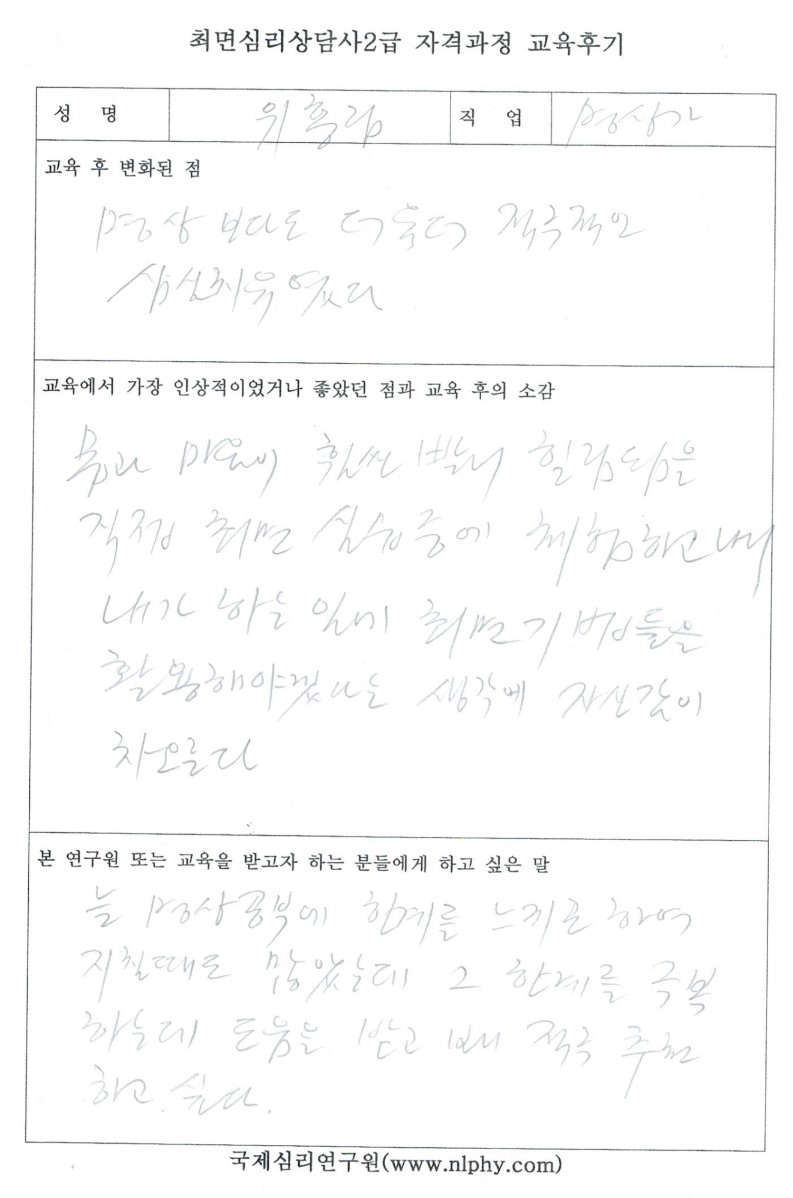 최면심리상담사2급 자격과정 교육후기
성 명 위흥림 직 업 명상가
교육 후 변화된 점
명상 보다도 더욱더 적극적인
심신치유였다
교육에서 가장 인상적이었거나 좋았던 점과 교육 후의 소감
몸과 마음이 훨씬 빨리 힐링됨을
직접 최면 실습중에 체험하고나니
내가 하는 일에 최면기법들을
활용해야겠다는 생각에 자신감이
차오른다
본 연구원 또는 교육을 받고자 하는 분들에게 하고 싶은 말
늘 명상공부에 한계를 느끼곤 하여
지칠때도 많았는데 그 한계를 극복
하는데 도움을 받고 보니 적극 추천
하고 싶다.
국제심리연구원(www.nlphy.com)